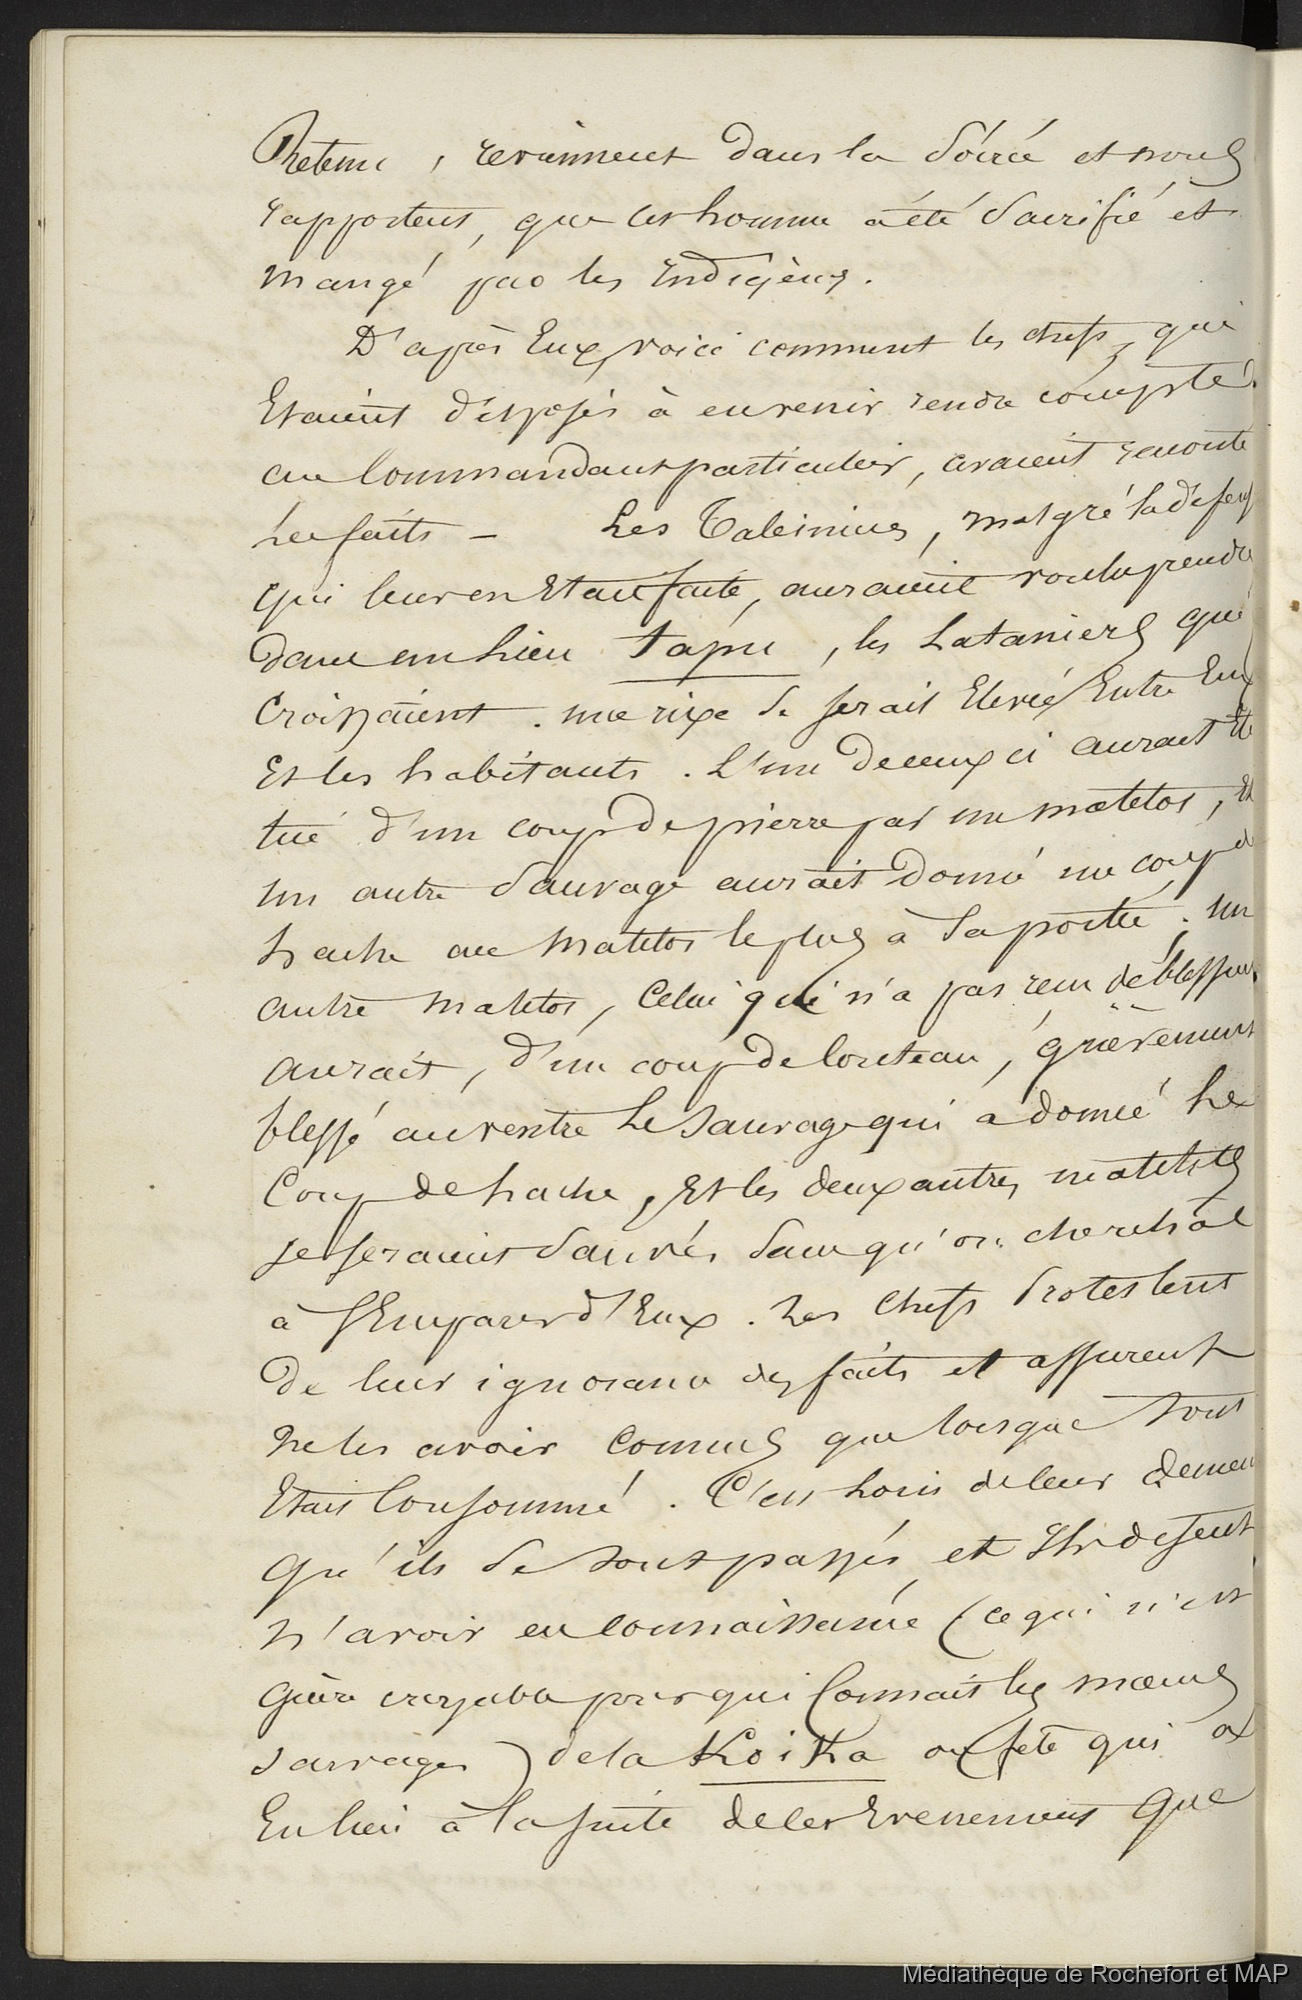 Retenu, reviennent dans la Soirée et nous
rapportent, que cet homme a été Sacrifié et
mangé par les Indigènes.
D'après Eux, voici comment les chefs, qui
Etaient disposés à en venir rendre compte
au Commandant particulier, avaient raconté
les faits — Les baleiniers, malgré la défense
qui leur en Etait faite, auraient voulu prendre
dans un lieu tapu, les Lataniers qui
Croissaient. une rixe se serait Elevée Entre Eux
Et les habitants. L'un de ceux ci aurait Eté
tué d'un coup de pierre par un matelot, Et
un autre Sauvage aurait donné un coup de
hache au matelot le plus à sa portée. un
autre matelot, Celui qui n'a pas reçu de blessure
aurait, d'un coup de Couteau, grièvement
blessé au ventre le Sauvage qui a donné le
Coup de hache, Et les deux autres matelots
se seraient Sauvés Sans qu'on cherchât
à s'Emparer d'Eux. Les Chefs Protestent
de leur ignorance des faits et assurent
ne les avoir connus que lorsque tout
Etait Consommé. C'est hors de leur demeure
qu'ils se sont passés et Ils disent
n'avoir eu connaissance (ce qui n'est
guère croyable pour qui Connait les mœurs
sauvages) de la Koika ou fête qui a
Eu lieu à la suite de ces Evenements que
Médiathèque de Rochefort et MAP